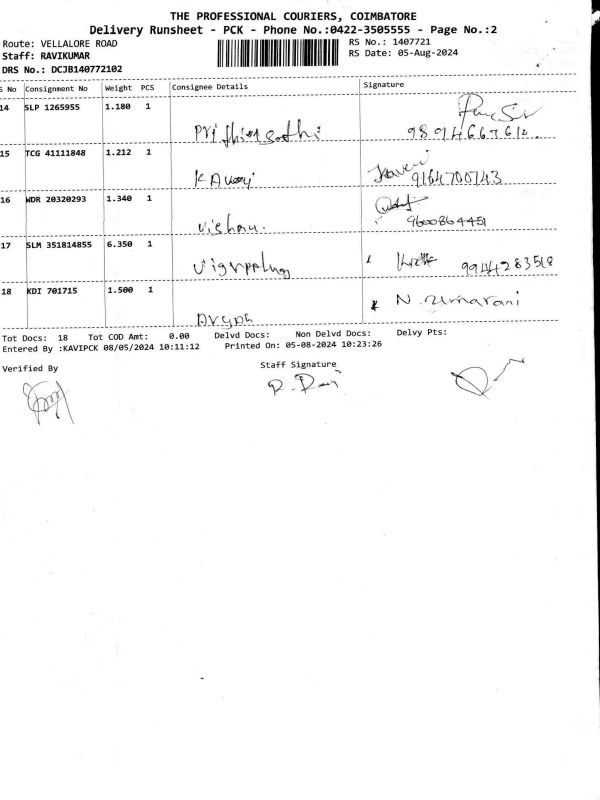 THE PROFESSIONAL COURIERS, COIMBATORE
Delivery Runsheet - PCK - Phone No.:0422-3505555 - Page No.:2
Route: VELLALORE ROAD
RS No.: 1407721
Staff: RAVIKUMAR
RS Date: 05-Aug-2024
DRS No.: DCJB140772102
S No Consignment No Weight PCS Consignee Details Signature
14 SLP 1265955 1.180 1
15 TCG 41111848 1.212 1
Kaveri
9164700143
16 WDR 20320293 1.340 1
9600864451
17 SLM 351814855 6.350 1
9944283518
18 KDI 701715 1.500 1
N. Umarani
Tot Docs: 18 Tot COD Amt: 0.00 Delvd Docs: Non Delvd Docs: Delvy Pts:
Entered By :KAVIPCK 08/05/2024 10:11:12 Printed On: 05-08-2024 10:23:26
Verified By
Staff Signature